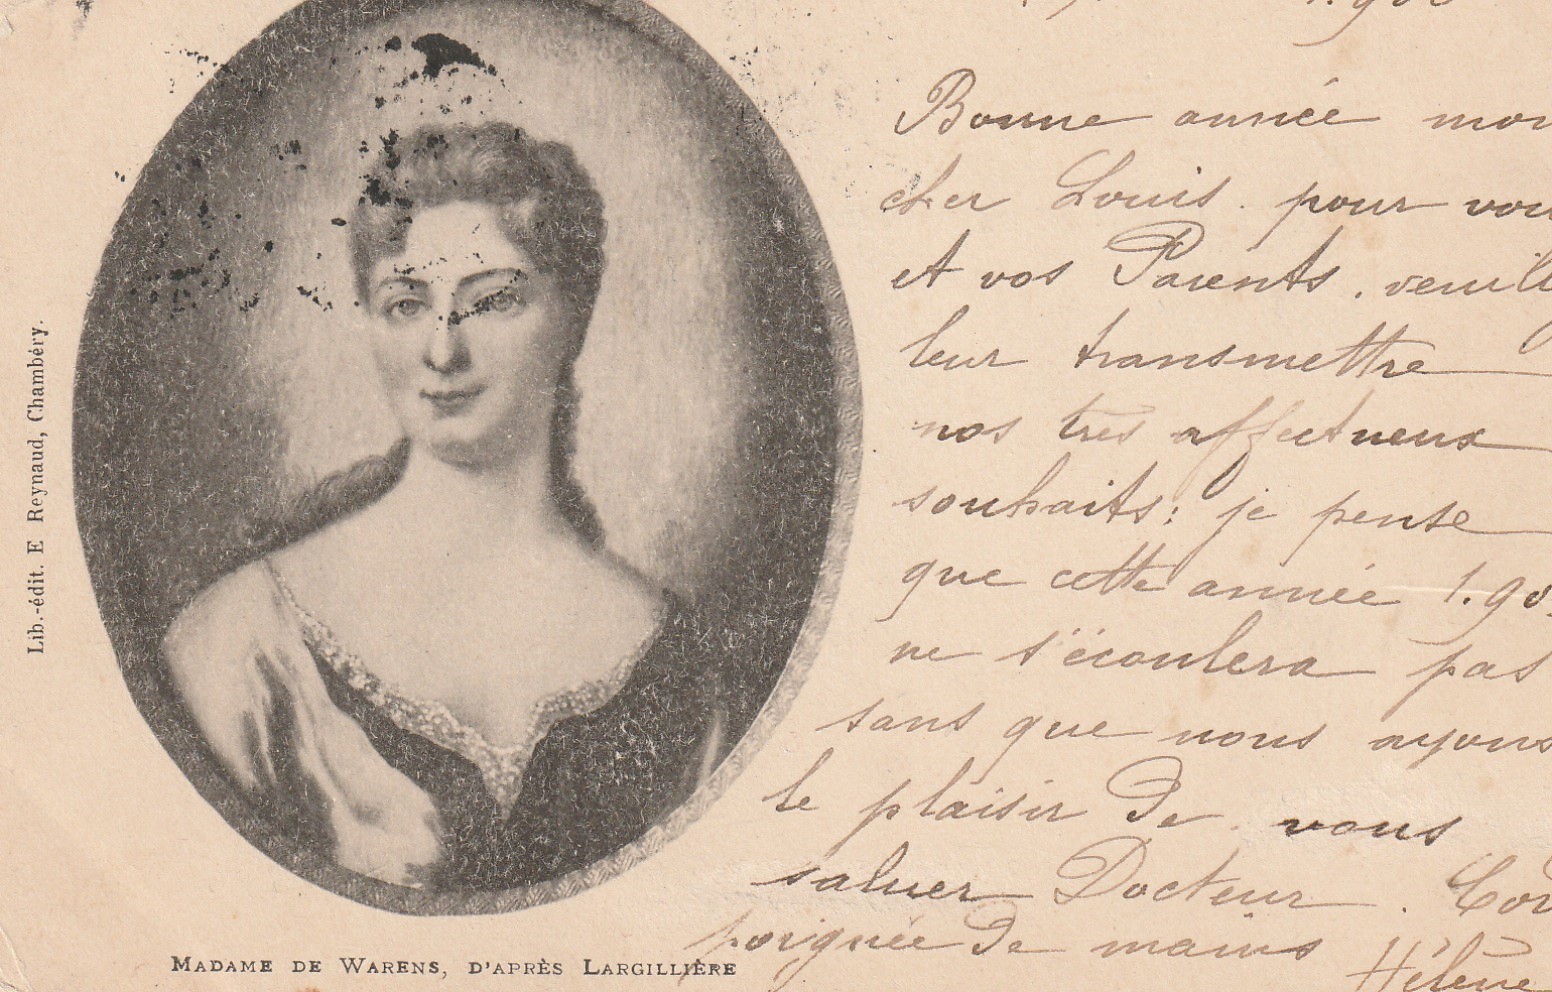 1.900
Bonne année mon
cher Louis. pour vou
et vos Parents. veuill
leur transmettre
nos très affectueux
souhaits: je pense
que cette année 1.90
ne s'écoulera pas
sans que nous ayons
le plaisir de vous
saluer Docteur. Cor
poignée de mains
Hélène
MADAME DE WARENS, D'APRÈS LARGILLIÈRE
Lib.-édit. E Reynaud, Chambéry.